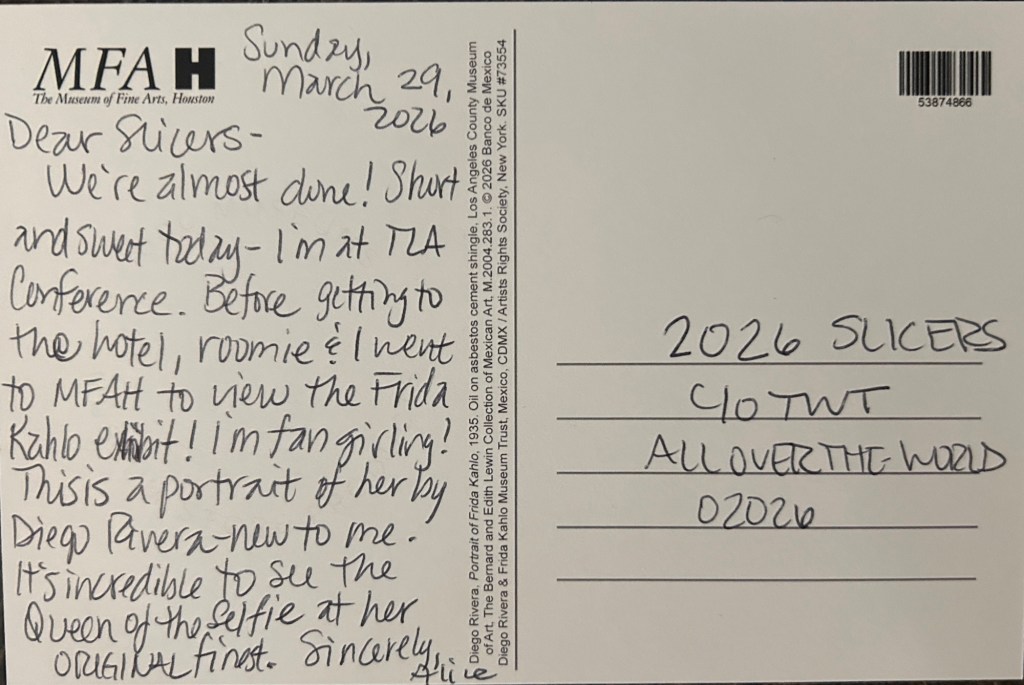 MFA H
The Museum of Fine Arts, Houston
Sunday,
March 29,
2026
Dear Slicers-
We're almost done! Short
and sweet today- I'm at TLA
Conference. Before getting to
the hotel, roomie & I went
to MFAH to view the Frida
Kahlo exhibit! I'm fan girling!
This is a portrait of her by
Diego Rivera-new to me.
It's incredible to see the
Queen of the Selfie at her
ORIGINAL finest. Sincerely,
Alice
Diego Rivera, Portrait of Frida Kahlo, 1935. Oil on asbestos cement shingle, Los Angeles County Museum
of Art, The Bernard and Edith Lewin Collection of Mexican Art, M.2004.283.1. © 2026 Banco de Mexico
Diego Rivera & Frida Kahlo Museum Trust, Mexico, CDMX / Artists Rights Society, New York. SKU #73554
53874866
2026 SLICERS
C/O TWT
ALL OVER-THE-WORLD
02026